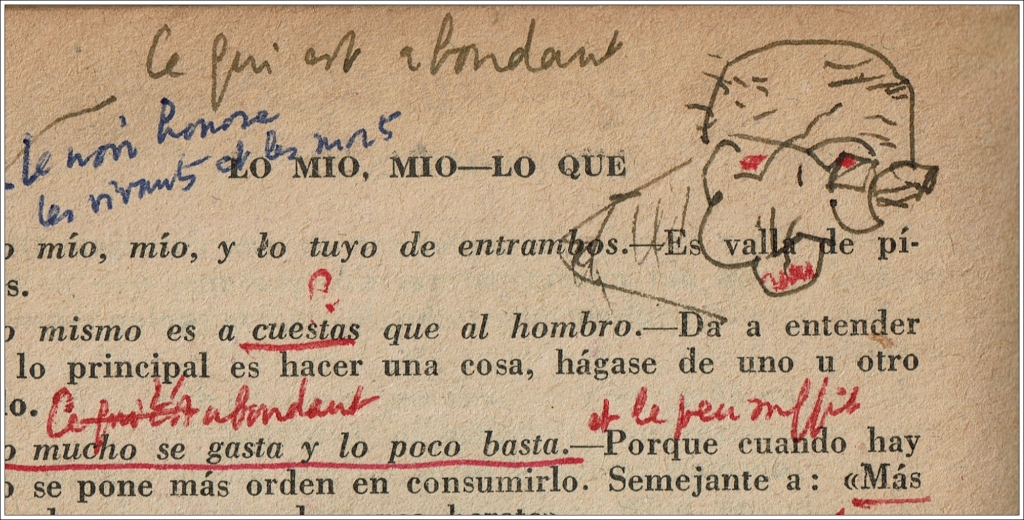 Ce qui est abondant
Le noir honore
les vivants et les morts
LO MIO, MIO—LO QUE
o mío, mío, y lo tuyo de entrambos.—Es valla de pí-
s.
?
o mismo es a cuestas que al hombro.—Da a entender
lo principal es hacer una cosa, hágase de uno u otro
lo.
Ce qui est abondant et le peu suffit
o mucho se gasta y lo poco basta.—Porque cuando hay
o se pone más orden en consumirlo. Semejante a: «Más